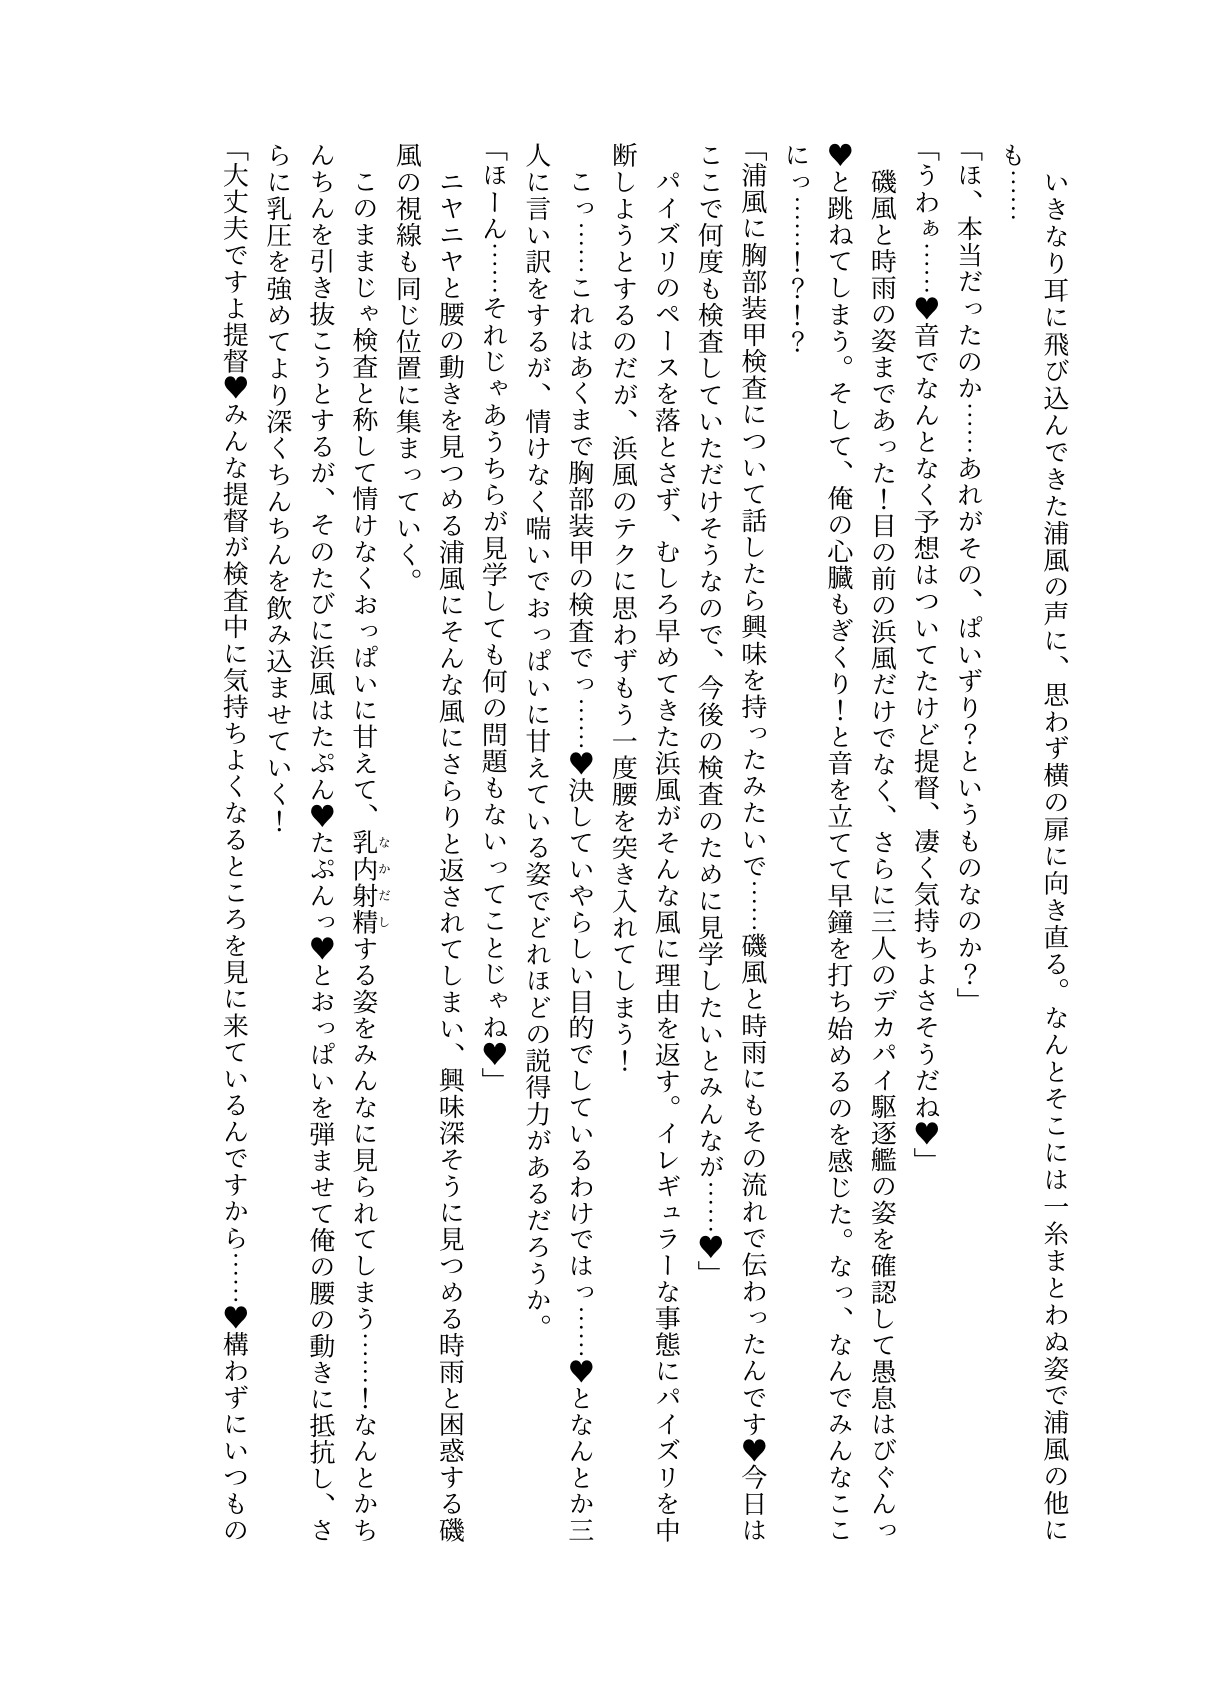 いきなり耳に飛び込んできた浦風の声に、思わず横の扉に向き直る。なんとそこには一糸まとわぬ姿で浦風の他に
も……
「ほ、本当だったのか……あれがその、ぱいずり?というものなのか?」
「うわぁ……♥音でなんとなく予想はついてたけど提督、凄く気持ちよさそうだね♥」
磯風と時雨の姿まであった!目の前の浜風だけでなく、さらに三人のデカパイ駆逐艦の姿を確認して愚息はびぐんっ
♥と跳ねてしまう。そして、俺の心臓もぎくり!と音を立てて早鐘を打ち始めるのを感じた。なっ、なんでみんなここ
にっ……!?!?
「浦風に胸部装甲検査について話したら興味を持ったみたいで……磯風と時雨にもその流れで伝わったんです♥今日は
ここで何度も検査していただけそうなので、今後の検査のために見学したいとみんなが……♥」
パイズリのペースを落とさず、むしろ早めてきた浜風がそんな風に理由を返す。イレギュラーな事態にパイズリを中
断しようとするのだが、浜風のテクに思わずもう一度腰を突き入れてしまう!
こっ……これはあくまで胸部装甲の検査でっ……♥決していやらしい目的でしているわけではっ……♥となんとか三
人に言い訳をするが、情けなく喘いでおっぱいに甘えている姿でどれほどの説得力があるだろうか。
「ほーん……それじゃあうちらが見学しても何の問題もないってことじゃね♥」
ニヤニヤと腰の動きを見つめる浦風にそんな風にさらりと返されてしまい、興味深そうに見つめる時雨と困惑する磯
風の視線も同じ位置に集まっていく。
このままじゃ検査と称して情けなくおっぱいに甘えて、乳内射精なかだしする姿をみんなに見られてしまう……!なんとかち
んちんを引き抜こうとするが、そのたびに浜風はたぷん♥たぷんっ♥とおっぱいを弾ませて俺の腰の動きに抵抗し、さ
らに乳圧を強めてより深くちんちんを飲み込ませていく!
「大丈夫ですよ提督♥みんな提督が検査中に気持ちよくなるところを見に来ているんですから……♥構わずにいつもの